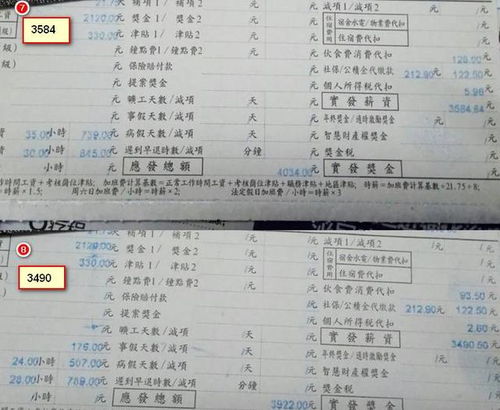 7
3584
21.7 天 補項1/ 補項2 /元 減項1/ 減項2 /元
2120.00元 獎金1/ 獎金2 /元 住宿費用 宿舍水電/物業費代扣 /元
330.00元 津貼1/ 津貼2 /元 住宿費代扣 /元
元 鐘點費1/鐘點費2 /元 伙食費消費代扣 128.00元
元 保險賠付款 元 社保/公積金代繳款 212.90元 122.50元
元 提案獎金 元 個人所得稅代扣 5.96元
元 曠工天數/減項 天 /元 實發薪資 3584.64元
元 事假天數/減項 天 /元 年終獎金/適時激勵獎金 /元 /元
35.00小時 739.00元 病假天數/減項 天 /元 智慧財產權獎金 /元
30.00小時 845.00元 遲到早退時數/減項 分鐘 /元 獎金稅 /元
小時 元 應發總額 4034.00元 實發獎金 元
作時間工資+考核崗位津貼; 加班費計算基數=正常工作時間工資+考核崗位津貼+職務津貼+地區津貼; 時薪=加班費計算基數÷21.75÷8;
=時薪×1.5; 周六日加班費/小時=時薪×2; 法定假日加班費/小時=時薪×3
8
3490
天 補項1/ 補項2 /元 減項1/ 減項2 /元
2120.00元 獎金1/ 獎金2 /元 住宿費用 宿舍水電/物業費代扣 /元
330.00元 津貼1/ 津貼2 /元 住宿費代扣 /元
元 鐘點費1/鐘點費2 /元 伙食費消費代扣 93.50元
元 保險賠付款 元 社保/公積金代繳款 212.90元 122.50元
元 提案獎金 元 個人所得稅代扣 2.60元
元 曠工天數/減項 天 /元 實發薪資 3490.50元
176.00元 事假天數/減項 天 /元 年終獎金/適時激勵獎金 /元 /元
24.00小時 507.00元 病假天數/減項 天 /元 智慧財產權獎金 /元
28.00小時 789.00元 遲到早退時數/減項 分鐘 /元 獎金稅 /元
小時 元 應發總額 3922.00元 實發獎金 元